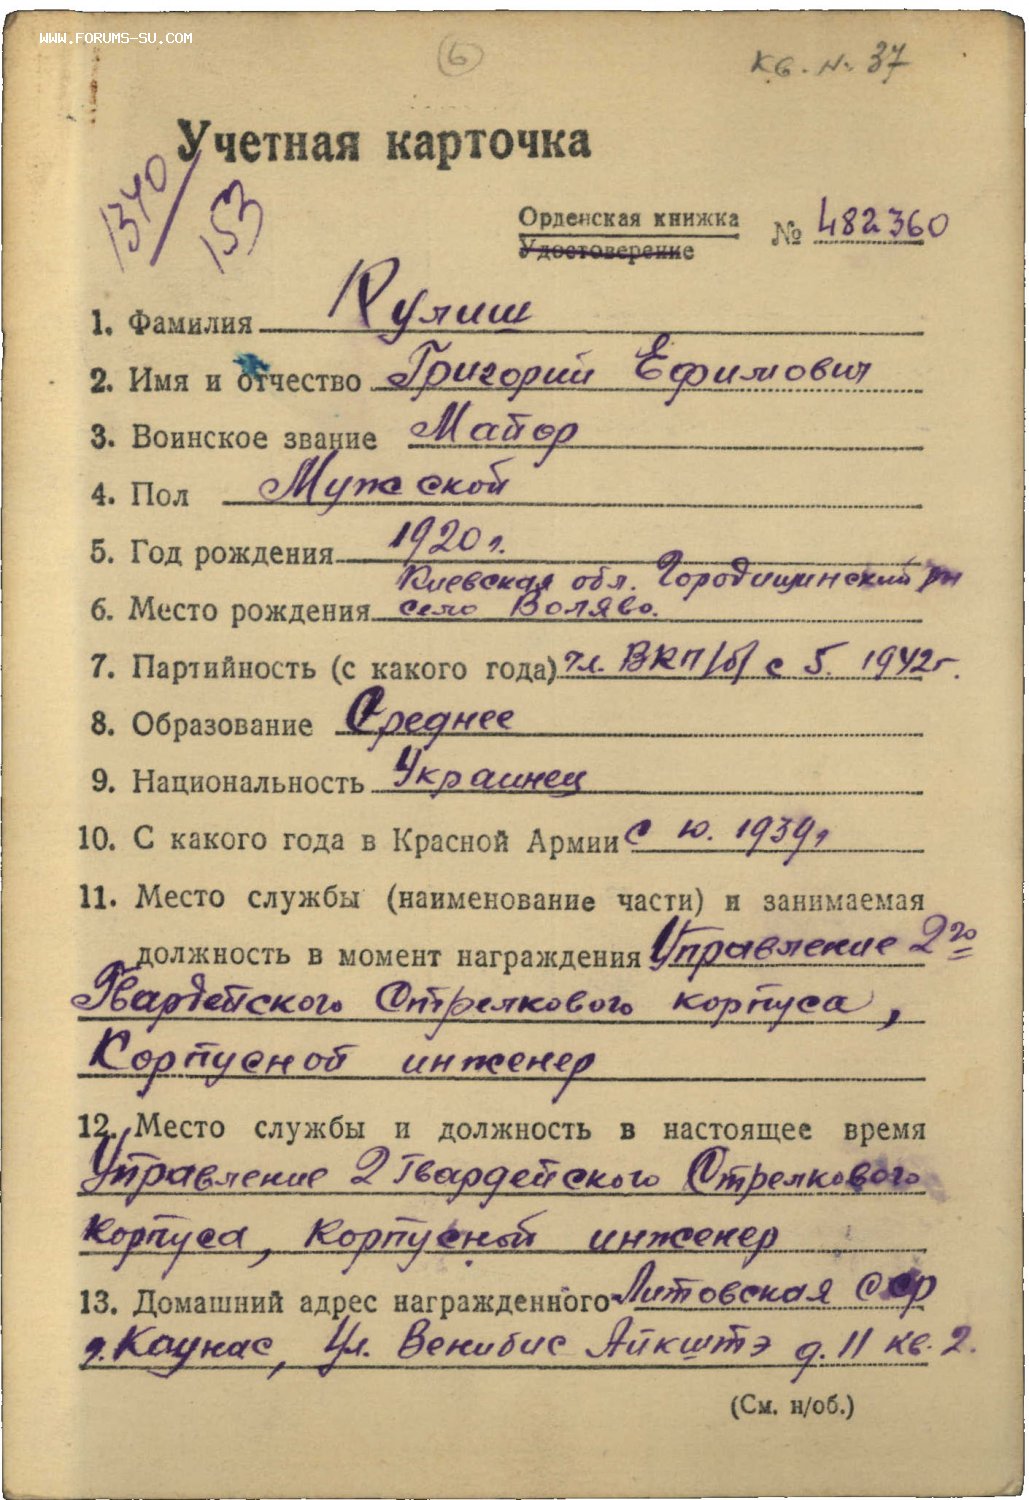 WWW.FORUMS-SU.COM
6
кв. N. 37
Учетная карточка
1340/153
Орденская книжка
Удостоверение
№ 482360
1. Фамилия Кулиш
2. Имя и отчество Григорий Ефимович
3. Воинское звание Майор
4. Пол Мужской
5. Год рождения 1920 г.
Киевская обл. Городищинский рн
6. Место рождения село Воляво.
7. Партийность (с какого года) чл. ВКП/б/ с 5. 1942г.
8. Образование Среднее
9. Национальность Украинец
10. С какого года в Красной Армии с 10. 1939г
11. Место службы (наименование части) и занимаемая
должность в момент награждения Управление 2го
Гвардейского Стрелкового корпуса,
Корпусной инженер
12. Место службы и должность в настоящее время
Управление 2 Гвардейского Стрелкового
корпуса, корпусной инженер
13. Домашний адрес награжденного Литовская ССР
г. Каунас, ул. Венибис Айкштэ д. 11 кв. 2.
(См. н/об.)